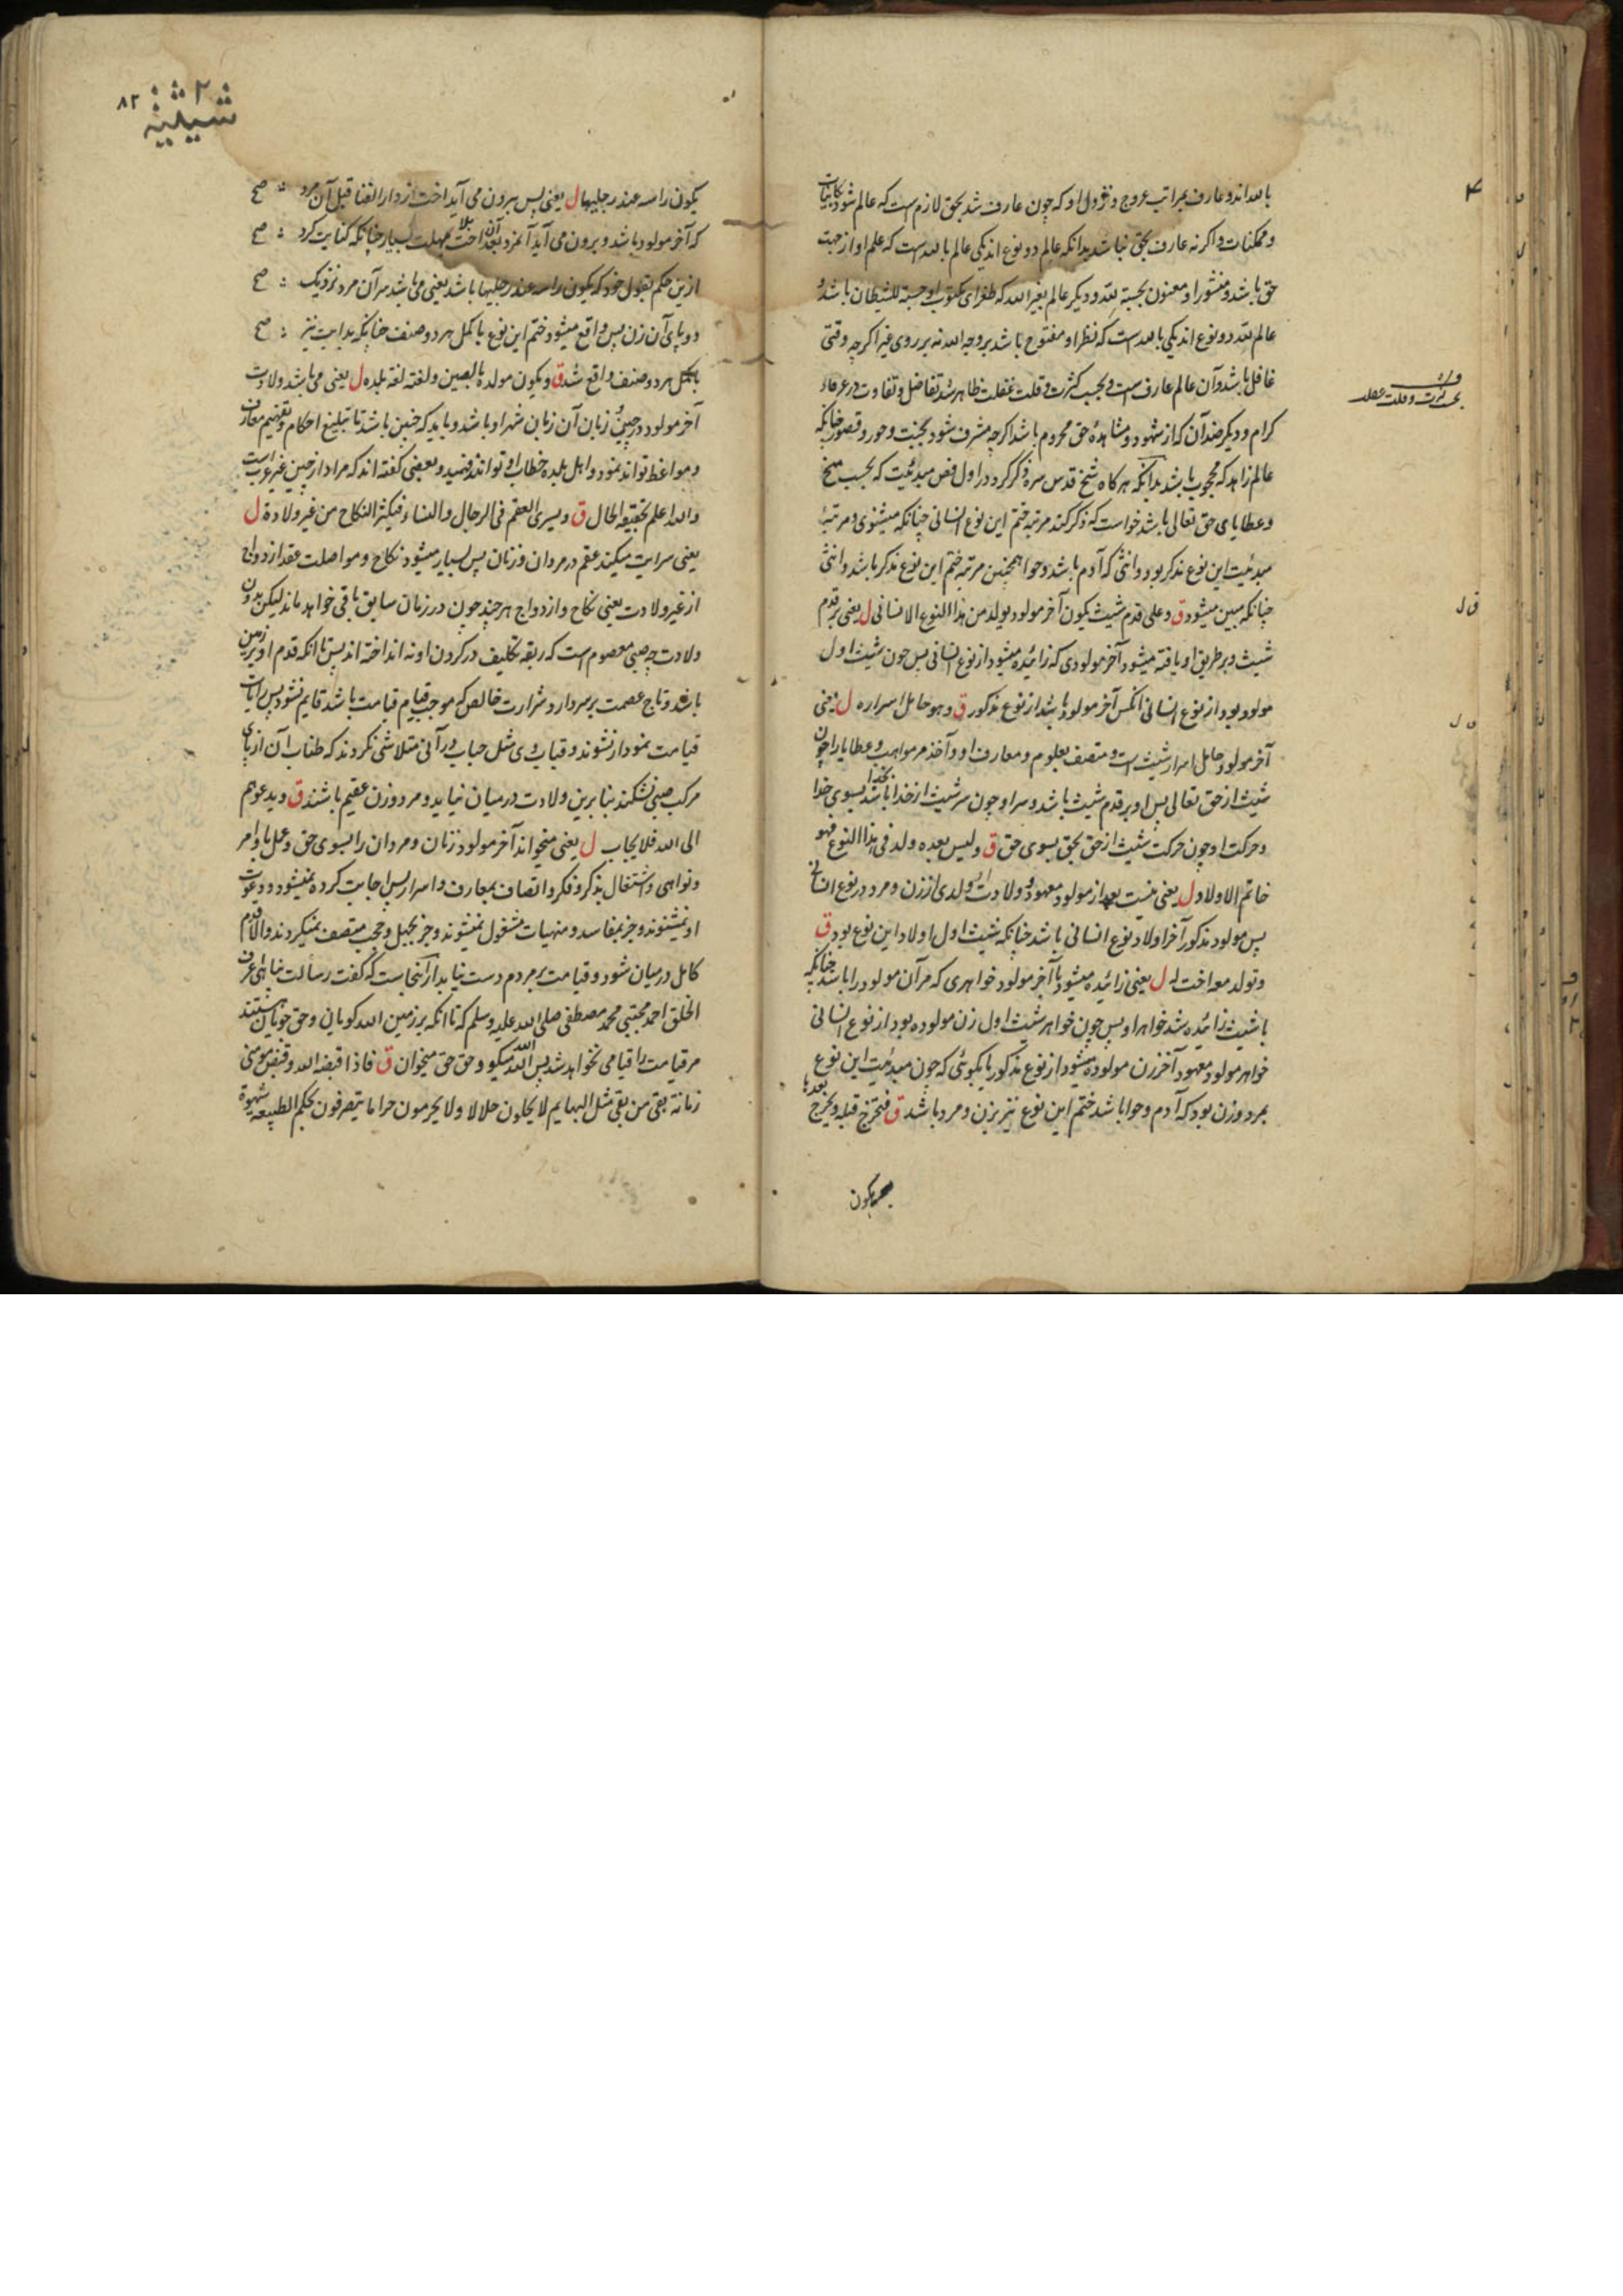 بالله اند و عارف بمراتب عروج و نزول او که چون عارف شد بحق لازم است که عالم شود بکاینات
و ممکنات و اگر نه عارف بحق نباشد بدانکه عالم دو نوع اند یکی عالم بالله است که علم او از جهت
حق باشد و منشور او معنون بحسبة لله و دیگر عالم بغیر الله که طغرای مکتوب او حسبة للشیطان باشد و
عالم لله دو نوع اند یکی بالله است که نظر او مفتوح باشد بروجه الله نه بر روی غیر اگرچه وقتی
غافل باشد و آن عالم عارف است و بحسب کثرت و قلت غفلت ظاهر شد تفاضل و تفاوت در عرفاء
کرام و دیگر ضد آن که از شهود و مشاهدهٔ حق محروم باشد اگرچه مشرف شود بجنت و حور و قصور چنانکه
عالم زاهد که محجوب باشد بدانکه هرگاه شیخ قدس سره ذکر کرد در اول فص مبدئیت که بحسب منح
و عطایای حق تعالی باشد خواست که ذکر کند مرتبه ختم این نوع انسانی چنانکه میشنوی و مرتبهٔ
مبدئیت این نوع مذکر بود و انثی که آدم باشد و حوا همچنین مرتبه ختم این نوع مذکر باشد و انثی
چنانکه مبین میشود ق و علی قدم شیث یکون آخر مولود یولد من هذا النوع الانسانی ل یعنی بر قدم
شیث و بر طریق او یافته میشود آخر مولودی که زائیده میشود از نوع انسانی پس چون شیث اول
مولود بود از نوع انسانی آنکس آخر مولود باشد از نوع مذکور ق و هو حامل اسراره ل یعنی
آخر مولود حامل اسرار شیث است و متصف بعلوم و معارف او و آخذ مر مواهب و عطایا را چون
شیث از حق تعالی پس او بر قدم شیث باشد و سر او چون سر شیث از خدا بخدا باشد بسوی خدا
و حرکت او چون حرکت شیث از حق بحق بسوی حق ق و لیس بعده ولد فی هذا النوع فهو
خاتم الاولاد ل یعنی نیست بعد از مولود معهود و ولادت او ولدی از زن و مرد در نوع انسانی
پس مولود مذکور آخر اولاد نوع انسانی باشد چنانکه شیث اول اولاد این نوع بود ق
و تولد معه اخت له ل یعنی زائیده میشود با آخر مولود خواهری که مر آن مولود را باشد چنانکه
با شیث زائیده شد خواهر او پس چون خواهر شیث اول زن مولوده بود از نوع انسانی
خواهر مولود معهود آخر زن مولوده میشود از نوع مذکور یا بگوئی که چون مبدئیت این نوع
بمرد و زن بود که آدم و حوا باشد ختم این نوع نیز بزن و مرد باشد ق فتخرج قبله و یخرج بعدها
یکون
ق ل
شیثیة
۸۲
یکون راسه عند رجلیها ل یعنی پس بیرون می آید اخت از دار الفنا قبل آن مرد صح
که آخر مولود باشد و بیرون می آید آنمرد بعد آن اخت بلا مهلت بسیار چنانکه کنایت کرد صح
ازین حکم بقول خود که یکون راسه عند رجلیها باشد یعنی می باشد سر آن مرد نزدیک صح
دو پای آن زن پس واقع میشود ختم این نوع با کمل هر دو صنف چنانکه بدایت نیز صح
باکمل هر دو صنف واقع شد ق و یکون مولده بالصین و لغته لغة بلده ل یعنی می باشد ولادت
آخر مولود در چین و زبان آن زبان شهر او باشد و باید که چنین باشد تا تبلیغ احکام و تفهیم معارف
و مواعظ تواند نمود و اهل بلده خطاب او توانند فهمید و بعضی گفته اند که مراد از چین غیر عرب است
والله اعلم بحقیقة الحال ق و یسری العقم فی الرجال و النساء فیکثر النکاح من غیر ولادة ل
یعنی سرایت میکند عقم در مردان و زنان پس بسیار میشود نکاح و مواصلت عقد ازدواج
از غیر ولادت یعنی نکاح و ازدواج هر چند چون در زمان سابق باقی خواهد ماند لیکن بدون
ولادت چه صبی معصوم است که ربقه تکلیف در گردن او نه انداخته اند پس تا آنکه قدم او بر زمین
باشد و تاج عصمت بر سر دارد شرارت خالص که موجب قیام قیامت باشد قایم نشود پس رایات
قیامت نمودار نشوند و قباب وی مثل حباب در آنی متلاشی نگردند که طناب آن از پای
مرکب صبی نشکند بنابرین ولادت در میان نیاید و مرد و زن عقیم باشند ق و یدعوهم
الی الله فلا یجاب ل یعنی میخواند آخر مولود زنان و مردان را بسوی حق و عمل باوامر
و نواهی و اشتغال بذکر و فکر و اتصاف بمعارف و اسرار پس اجابت کرده نمیشود و دعوت
او نمیشنوند و جز بمفاسد و منهیات مشغول نمیشوند و جز بجهل و حجب متصف نمیگردند و الا قدم
کامل در میان شود و قیامت بر مردم دست نیابد از آنجاست که گفت رسالت پناهی اعرف
الخلق احمد مجتبی محمد مصطفی صلی الله علیه و سلم که تا آنکه بر زمین الله گویان و حق جویان هستند
مر قیامت را قیامی نخواهد شد پس الله الله میگو و حق حق میخوان ق فاذا قبضه الله و قبض مومنی
زمانه بقی من بقی مثل البهایم لا یحلون حلالا و لا یحرمون حراما یتصرفون بحکم الطبیعة شهوة